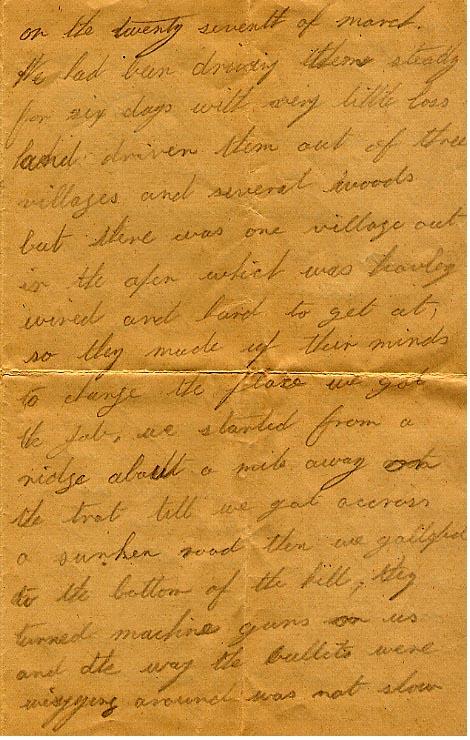 on the twenty seventh of march.
We had been driving them steady
for six days with very little loss
had driven them out of three
villages and several woods
but there was one village out
in the open which was heavley
wired and hard to get at,
so they made up their minds
to charge the place we got
the job, we started from a
ridge about a mile away on
the trot till we got accross
a sunken road then we galloped
to the bottom of the hill, they
turned machine guns on us
and the way the bullits were
wizzing around was not slow